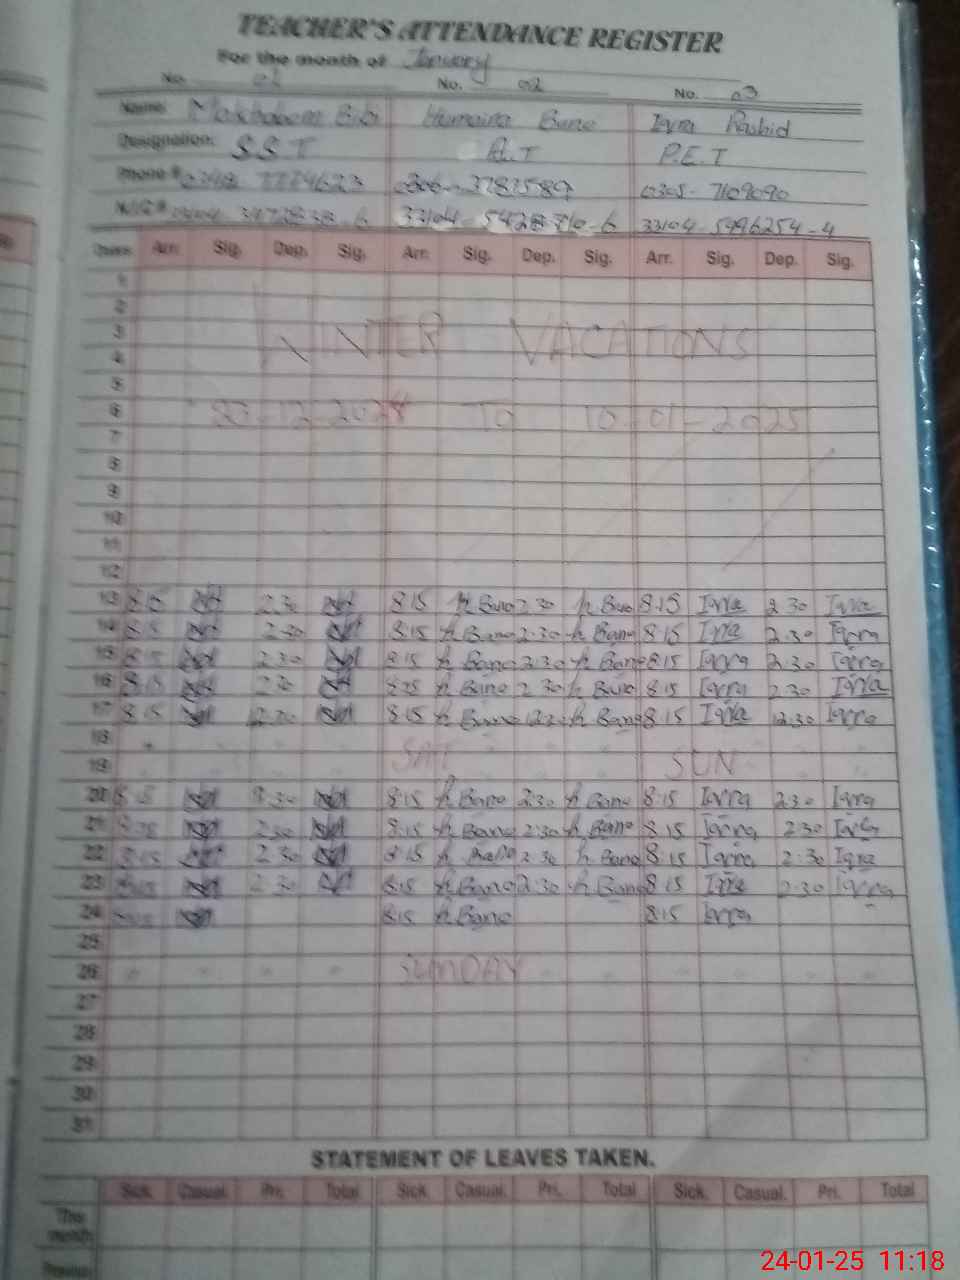 TEACHER'S ATTENDANCE REGISTER
For the month of January
No. 01 No. 02 No. 03
Name: Bibi Humaira Bano Iqra Rashid
Designation: S.S.T A.T P.E.T
Phone # 0305-7109090
33104-5996254-4
Arr. Sig. Dep. Sig. Arr. Sig. Dep. Sig. Arr. Sig. Dep. Sig.
1
2
3 WINTER VACATIONS
4
5
6 -12-2024 TO 10-01-2025
7
8
9
10
11
12
13 8.15 2.30 8.15 h Bano 2.30 h Bano 8.15 Iqra 2.30 Iqra
14 8.15 2.30 8.15 h Bano 2.30 h Bano 8.15 Iqra 2.30 Iqra
15 8.15 2.30 8.15 h Bano 2.30 h Bano 8.15 Iqra 2.30 Iqra
16 8.15 2.30 h Bano 2.30 h Bano 8.15 Iqra 2.30 Iqra
17 8.15 8.15 h Bano h Bano 8.15 Iqra 12.30 Iqra
18 SAT
19 SUN
20 8.15 2.30 8.15 h Bano 2.30 h Bano 8.15 Iqra 2.30 Iqra
21 2.30 8.15 h Bano 2.30 h Bano 8.15 Iqra 2.30 Iqra
22 8.15 2.30 8.15 h Bano 2.30 h Bano 8.15 Iqra 2.30 Iqra
23 2.30 8.15 h Bano 2.30 h Bano 8.15 Iqra 2.30 Iqra
24 8.15 h Bano 8.15 Iqra
25
26 SUNDAY
27
28
29
30
31
STATEMENT OF LEAVES TAKEN.
Sick. Casual. Pri. Total Sick. Casual. Pri. Total Sick. Casual. Pri. Total
This
month
24-01-25 11:18